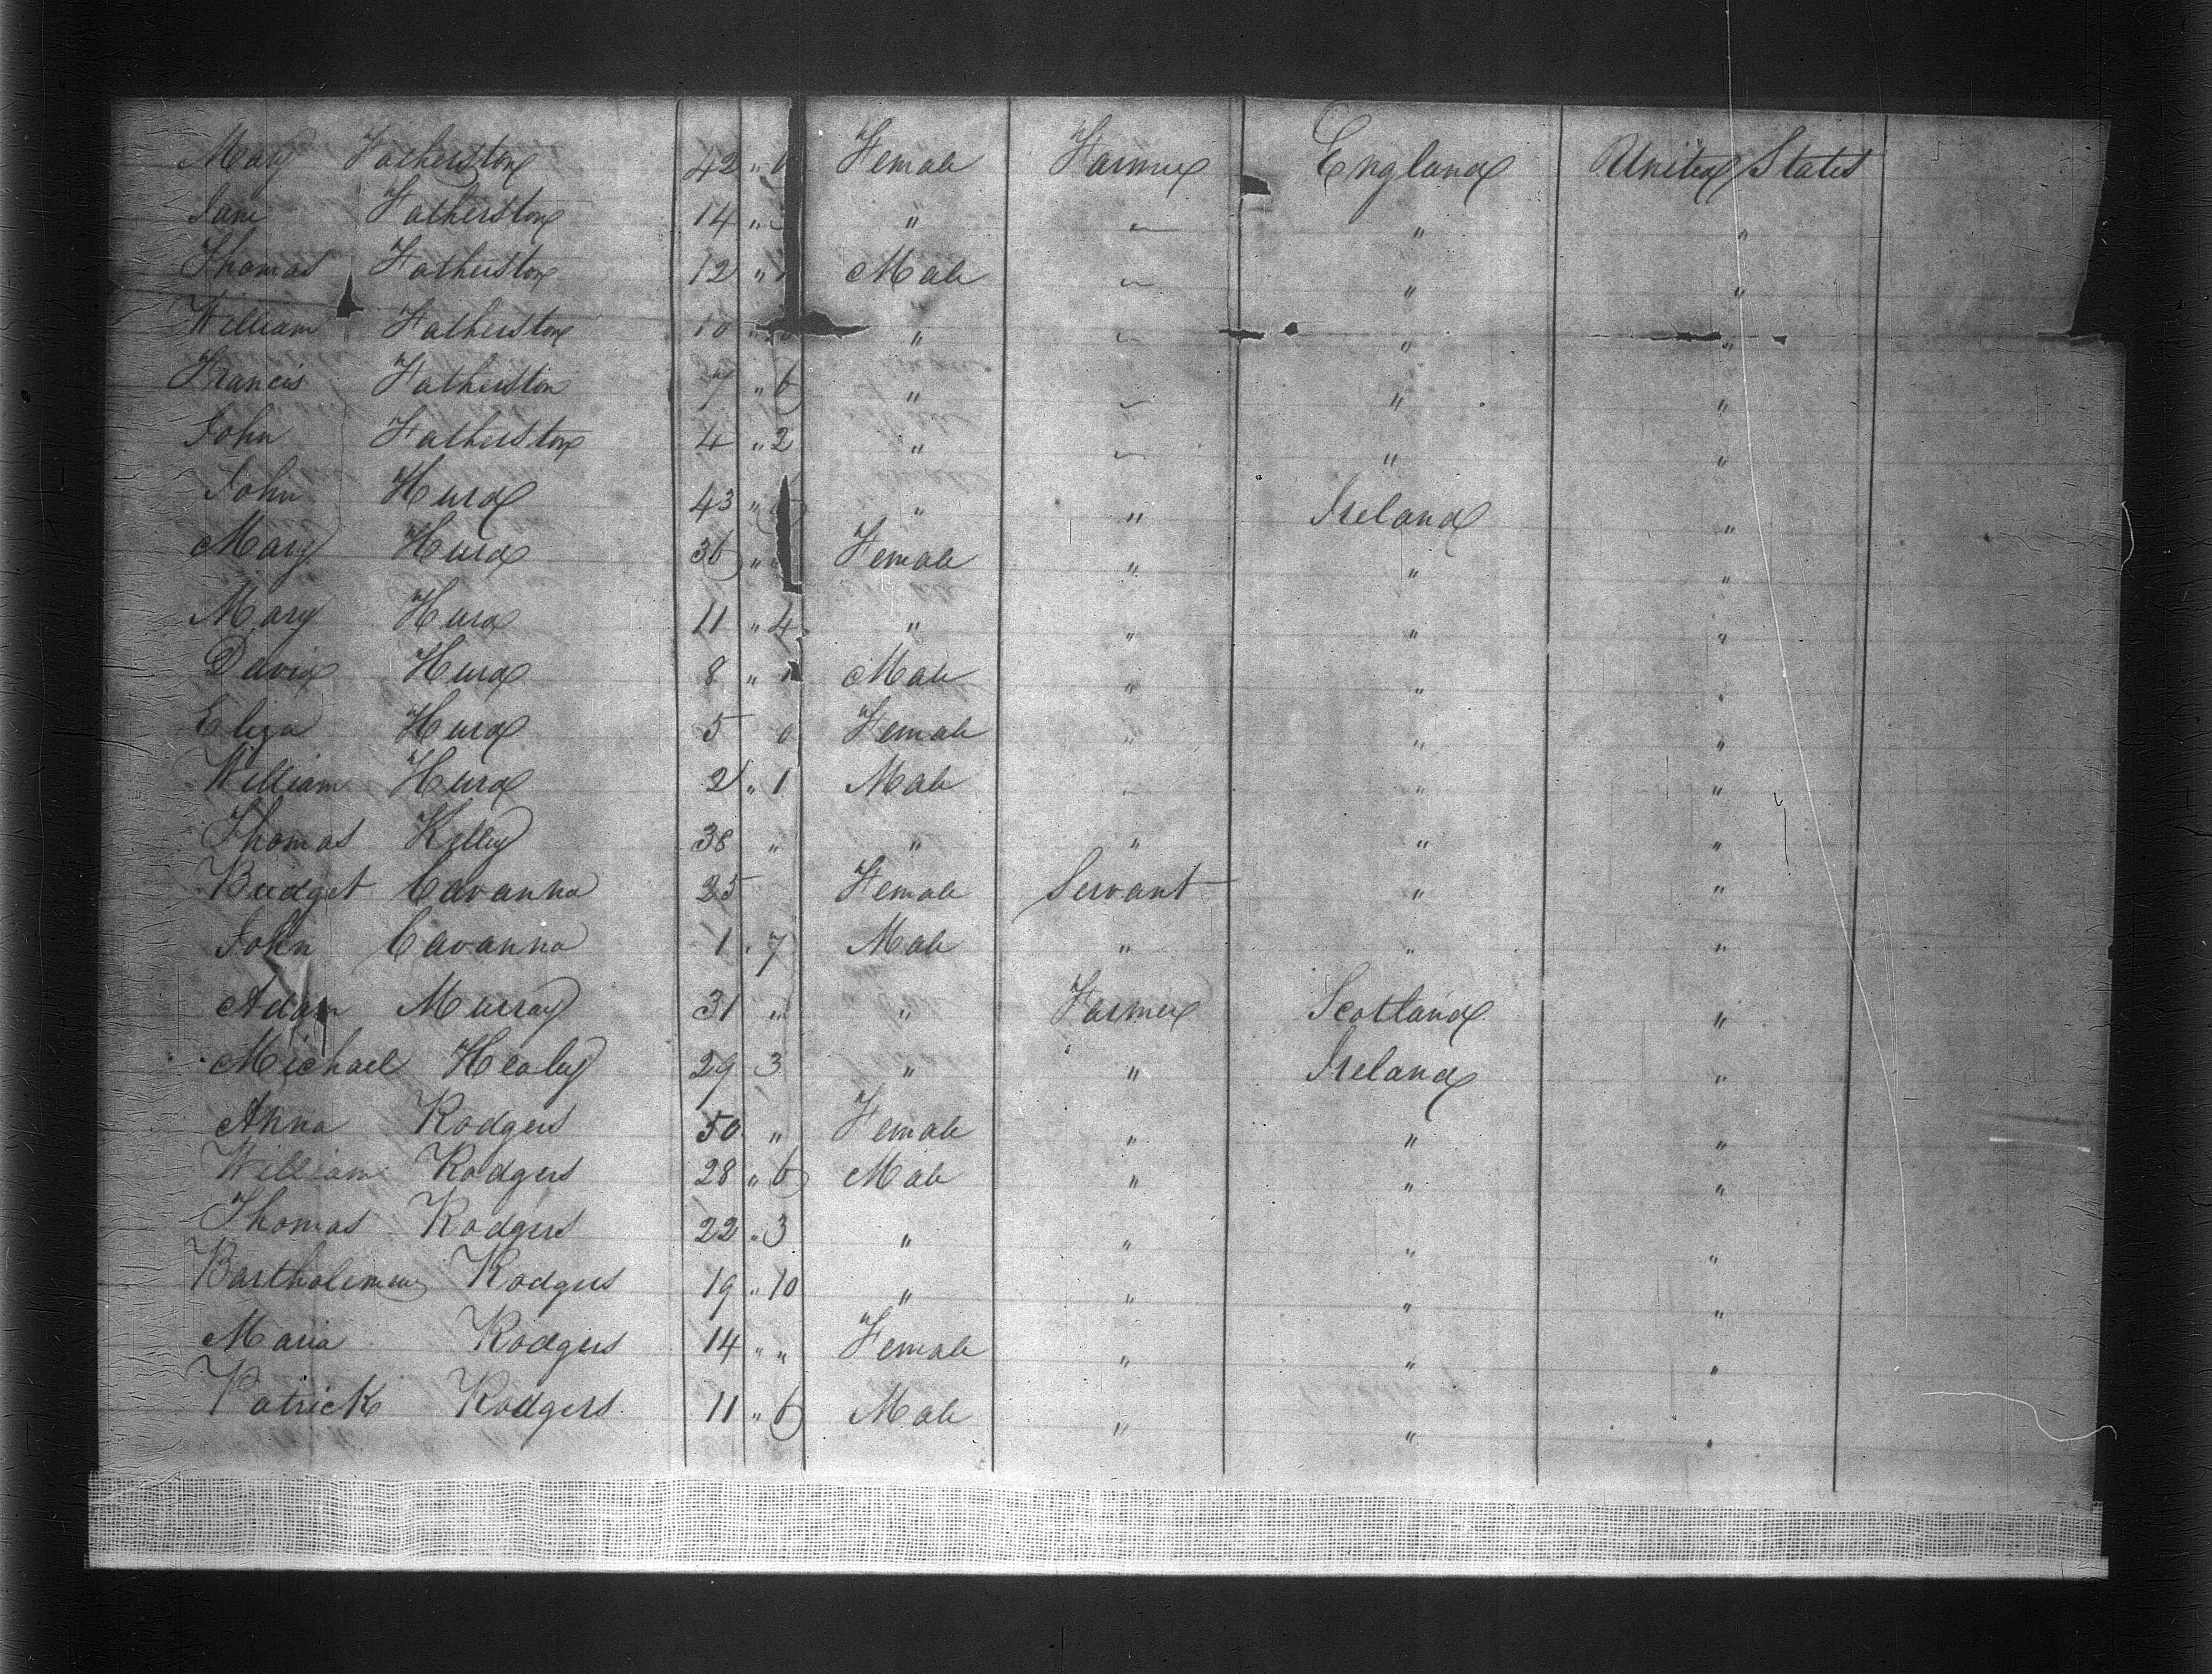 Mary Fatherston 42 " 0 Female Farmer England United States
Jane Fatherston 14 " " " "
Thomas Fatherston 12 " 1 Male " " "
William Fatherston 10 " " " "
Francis Fatherston 7 " 6 " " " "
John Fatherston 4 " 2 " " " "
John Hurd 43 " " " Ireland "
Mary Hurd 36 " Female " " "
Mary Hurd 11 " 4 " " " "
David Hurd 8 " Male " " "
Eliza Hurd 5 0 Female " " "
William Hurd 2 " 1 Male " " "
Thomas Kelley 38 " " " " "
Bridget Cavanna 25 Female Servant " "
John Cavanna 1 " 7 Male " " "
Adam Murray 31 " " Farmer Scotland "
Michael Healey 29 3 " " Ireland "
Anna Rodgers 50 " Female " " "
William Rodgers 28 " 6 Male " " "
Thomas Rodgers 22 " 3 " " " "
Bartholemew Rodgers 19 " 10 " " " "
Maria Rodgers 14 " " Female " " "
Patrick Rodgers 11 " 6 Male " " "